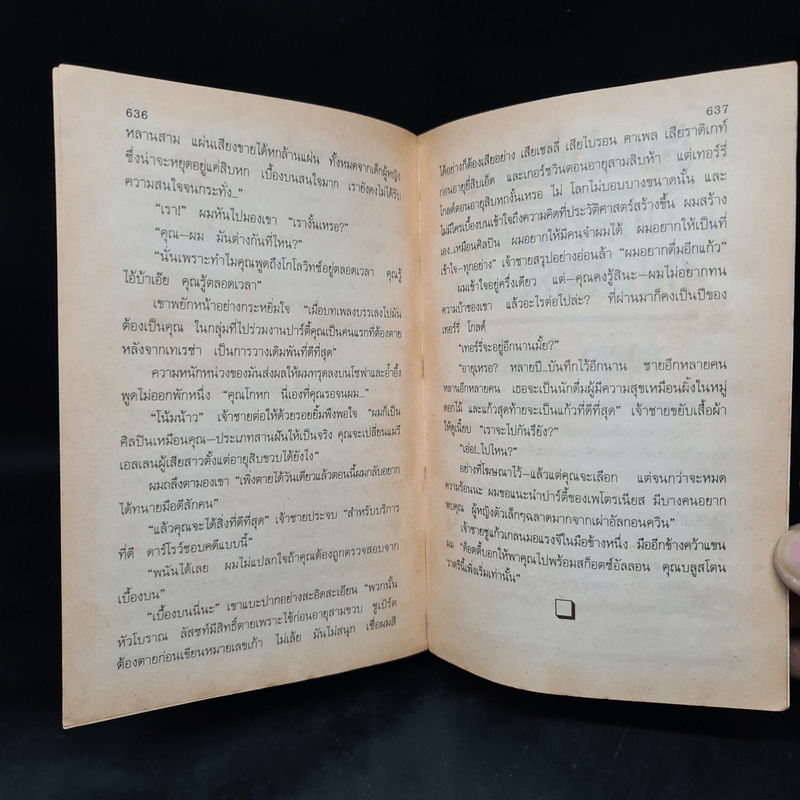 636
หลานสาม แผ่นเสียงขายได้หกล้านแผ่น ทั้งหมดจากเด็กผู้หญิง
ซึ่งน่าจะหยุดอยู่แค่สิบหก เบื้องบนสนใจมาก เรายังคงไม่ได้รับ
ความสนใจจนกระทั่ง..."
"เรา!" ผมหันไปมองเขา "เรางั้นเหรอ?"
"คุณ—ผม มันต่างกันที่ไหน?"
"นั่นเพราะทำไมคุณพูดถึงโกโลวิทซ์อยู่ตลอดเวลา คุณรู้
ไอ้บ้าเอ๊ย คุณรู้ตลอดเวลา"
เขาพยักหน้าอย่างกระหยิ่มใจ "เมื่อบทเพลงบรรเลงไปมัน
ต้องเป็นคุณ ในกลุ่มที่ไปร่วมงานปาร์ตี้คุณเป็นคนแรกที่ต้องตาย
หลังจากเทเรซ่า เป็นการวางเดิมพันที่ดีที่สุด"
ความหนักหน่วงของมันส่งผลให้ผมทรุดลงบนโซฟาและอ้ำอึ้ง
พูดไม่ออกพักหนึ่ง "คุณโกหก นี่เองที่คุณรอจนผม..."
"โน้มน้าว" เจ้าชายต่อให้ด้วยรอยยิ้มพึงพอใจ "ผมก็เป็น
ศิลปินเหมือนคุณ—ประเภทสานฝันให้เป็นจริง คุณจะเปลี่ยนแมรี
เอลเลนผู้เสียสาวตั้งแต่อายุสิบขวบได้ยังไง"
ผมถลึงตามองเขา "เพิ่งตายได้วันเดียวแล้วตอนนี้ผมกลับอยาก
ได้ทนายมือดีสักคน"
"แล้วคุณจะได้สิ่งที่ดีที่สุด" เจ้าชายประจบ "สำหรับบริการ
ที่ดี ดาร์โรว์ชอบคดีแบบนี้"
"พนันได้เลย ผมไม่แปลกใจถ้าคุณต้องถูกตรวจสอบจาก
เบื้องบน"
"เบื้องบนนี่นะ" เขาแบะปากอย่างสะอิดสะเอียน "พวกนั้น
หัวโบราณ ลัสซท์มีสิทธิ์ตายเพราะไข้ก่อนอายุสามขวบ ชูเบิร์ต
ต้องตายก่อนเขียนหมายเลขเก้า ไม่เล้ย มันไม่สนุก เชื่อผมสิ
637
ได้อย่างก็ต้องเสียอย่าง เสียเชลลี่ เสียไบรอน คาเพล เสียราดิเกท์
ก่อนอายุยี่สิบเอ็ด และเกอร์ชวินตอนอายุสามสิบห้า แต่เทอร์รี่
โกลด์ตอนอายุสิบหกงั้นเหรอ ไม่ โลกไม่บอบบางขนาดนั้น และ
ไม่มีใครเบื้องบนเข้าใจถึงความคิดที่ประวัติศาสตร์สร้างขึ้น ผมสร้าง
เอง...เหมือนศิลปิน ผมอยากให้มีคนจำผมได้ ผมอยากให้เป็นที่
เข้าใจ—ทุกอย่าง" เจ้าชายสรุปอย่างอ่อนล้า "ผมอยากดื่มอีกแก้ว"
ผมเข้าใจอยู่ครึ่งเดียว แต่—คุณคงรู้สินะ—ผมไม่อยากทน
ความบ้าของเขา แล้วอะไรต่อไปล่ะ? ที่ผ่านมาก็คงเป็นปีของ
เทอร์รี่ โกลด์
"เทอร์รี่จะอยู่อีกนานมั้ย?"
"อายุเหรอ? หลายปี...บันทึกไว้อีกนาน ชายอีกหลายคน
หลานอีกหลายคน เธอจะเป็นนักดื่มผู้มีความสุขเหมือนผึ้งในหมู่
ดอกไม้ และแก้วสุดท้ายจะเป็นแก้วที่ดีที่สุด" เจ้าชายขยับเสื้อผ้า
ให้ดูเนี้ยบ "เราจะไปกันรึยัง?"
"เอ้อ...ไปไหน?"
อย่างที่โฆษณาไว้—แล้วแต่คุณจะเลือก แต่จนกว่าจะหมด
ความร้อนนะ ผมขอแนะนำปาร์ตี้ของเพโตรเนียส มีบางคนอยาก
พบคุณ ผู้หญิงตัวเล็กๆฉลาดมากจากเผ่าอัลกอนควิน"
เจ้าชายชูแก้วเกลนมอแรงจีในมือข้างหนึ่ง มืออีกข้างคว้าแขน
ผม "ด็อตตี้บอกให้พาคุณไปพร้อมสก็อตซ์อัลลอน คุณบลูสโตน
ราตรีนี้เพิ่งเริ่มเท่านั้น"